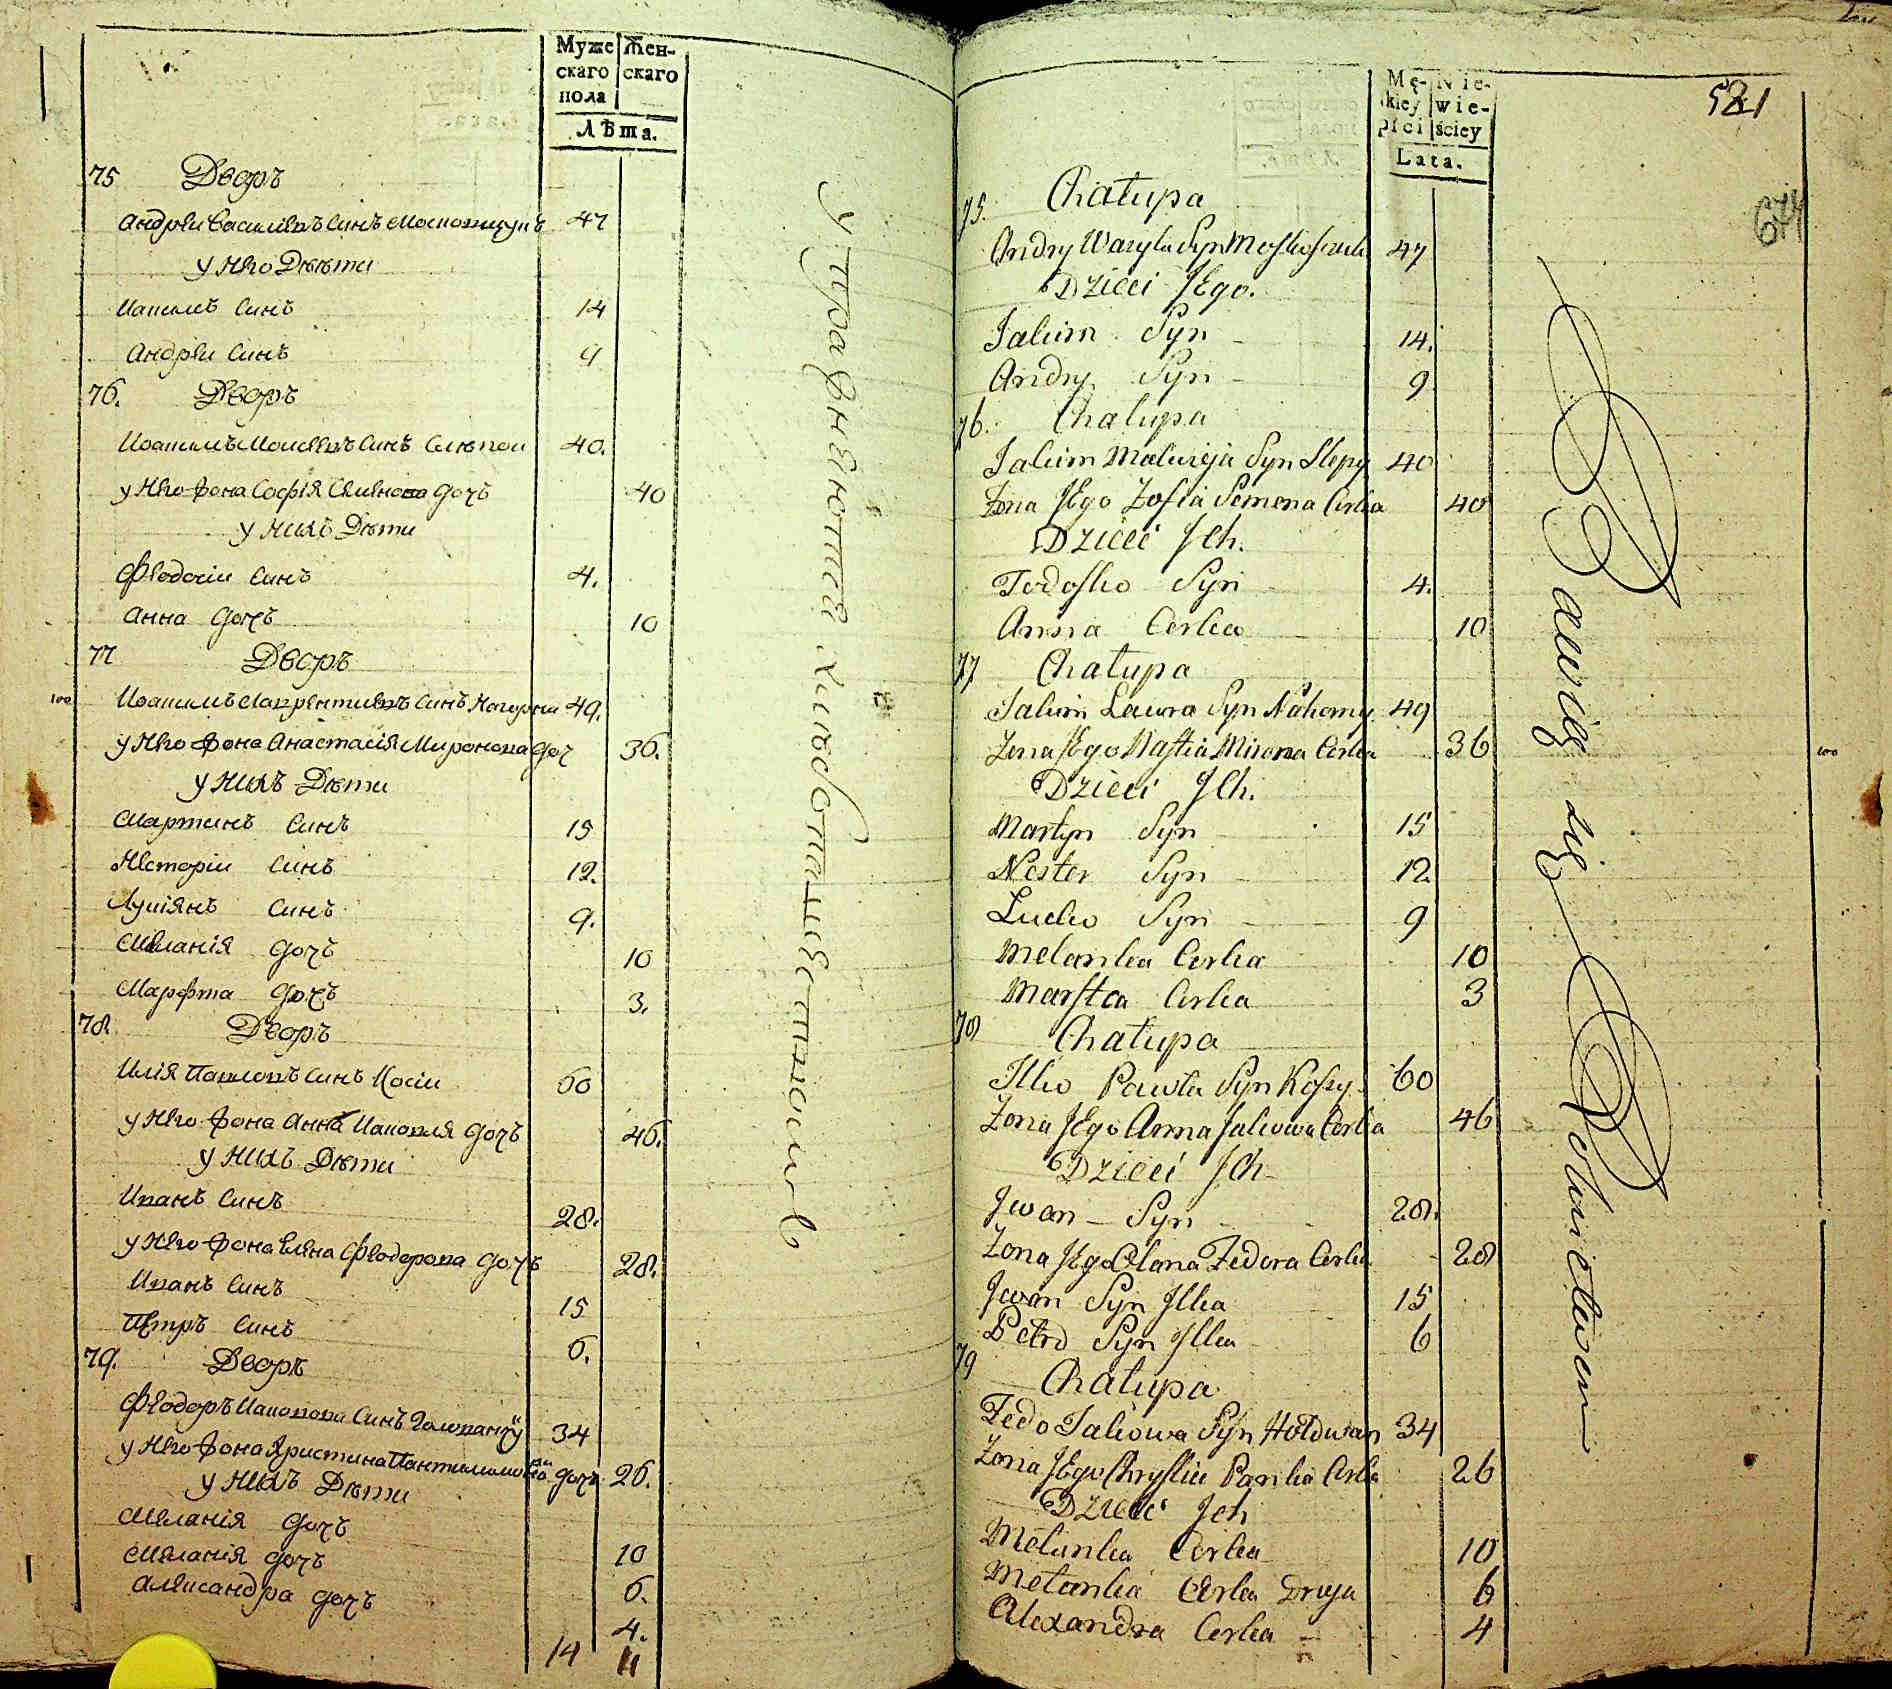 Муже Жен-
скаго скаго
пола
Лѣта.
75 Дворъ
Андрей Василевъ Синъ 47
у Него Дѣти
Иакимъ Синъ 14
Андрей Синъ 9
76. Дворъ
Иоакимъ Моисеевъ Синъ Слѣпой 40.
у Него Жена Софія Семенова Дочъ 40
у Нихъ Дѣти
Феодосій Синъ 4.
Анна Дочъ 10
77 Дворъ
100
Иоакимъ Лаврентиевъ Синъ Нагорни 49.
у Него Жена Анастасія Миронова Доч 36.
у Нихъ Дѣти
Мартинъ Синъ 15
Несторій Синъ 12.
Лукіянъ Синъ 9.
Меланія Дочъ 10
Марфта Дочъ 3.
78. Дворъ
Илія Павловъ Синъ Косій 60
у Него Жена Анна Иаковля Дочъ 46.
у Нихъ Дѣти
Иванъ Синъ 28.
у Него Жена Елена Феодорова Дочъ 28.
Иванъ Синъ 15
Петръ Синъ 6.
79. Дворъ
Феодоръ Иаковова Синъ 34
у Него Жена Христина Дочъ 26.
у Нихъ Дѣти
Меланія Дочъ 10
Меланія Дочъ 6.
Александра Дочъ 4.
14 11
Mę- Nie-
kiey wie-
płci ściey
Lata.
521
674
75. Chałupa
Andry Wasyla Syn 47
Dzieci Jego.
Jakim Syn 14.
Andry Syn 9
76. Chałupa
Jakim Syn Slepy 40
Zona Jego Zofia Semena Corka 40
Dzieci Ich.
Todosko Syn 4.
Anna Corka 10
77 Chałupa
Jakim Lawra Syn Nahorny 49
Zona Jego Nastia Mirona Corka 36
100
Dzieci Ich.
Martyn Syn 15
Nester Syn 12.
Lucko Syn 9
Melanka Corka 10
Marftca Corka 3
78 Chałupa
Ilko Pawła Syn Kossy 60
Zona Jego Anna Jakowa Corka 46
Dzieci Ich
Jwan Syn 28.
Zona Jego Olena Fedora Corka 28
Jwan Syn Ilka 15
Petro Syn Ilka 6
79 Chałupa
Fedo Jakowa Syn Hołowan 34
Zona Jego Chrystia Panka Corka 26
Dzieci Ich
Melanka Corka 10
Melanka Corka Druga 6
Alexandra Corka 4
Bawię się Robieniem